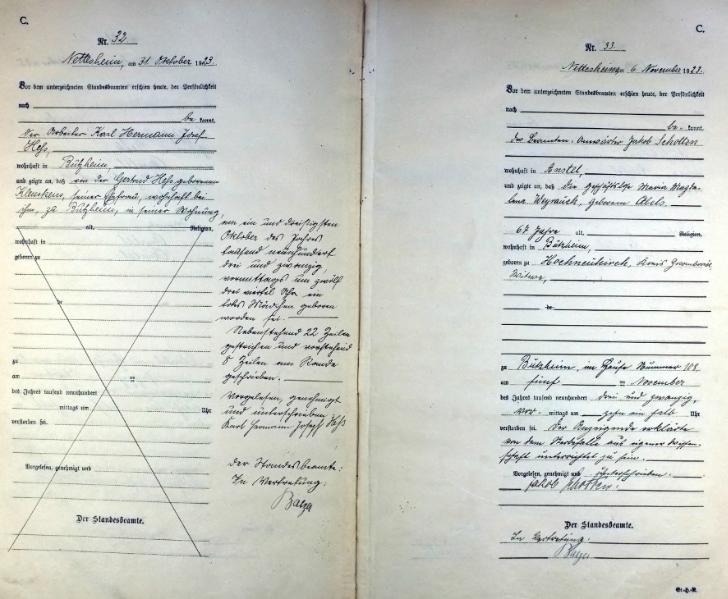 C.
Nr. 32.
Nettesheim, am 31. Oktober 1923.
Vor dem unterzeichneten Standesbeamten erschien heute, der Persönlichkeit
nach
be- kannt,
Der Arbeiter Karl Hermann Josef
Heß,
wohnhaft in Bützheim,
und zeigte an, daß von der Gertrud Heß geborenen
seiner Ehefrau, wohnhaft bei
ihm, zu Bützheim, in seiner Wohnung
alt, Religion,
wohnhaft in
geboren zu
zu
am
des Jahres tausend neunhundert
mittags um Uhr
verstorben sei.
Vorgelesen, genehmigt und
Der Standesbeamte.
am ein und dreißigsten
Oktober des Jahres
tausend neunhundert
drei und zwanzig,
vormittags um zwölf
drei viertel Uhr ein
totes Mädchen geboren
worden sei.
Nebenstehend 22 Zeilen
gestrichen und vorstehend
8 Zeilen am Rande
geschrieben.
Vorgelesen, genehmigt
und unterschrieben
Karl Hermann Joseph Heß
Der Standesbeamte:
In Vertretung:
C.
Nr. 33.
Nettesheim am 6. November 1923.
Vor dem unterzeichneten Standesbeamten erschien heute, der Persönlichkeit
nach
be- kannt,
der Beamten-Anwärter Jakob Schotten
wohnhaft in Anstel,
und zeigte an, daß die geschäftslose Maria Magda-
lena Weyrauch, geborene Abels
67 Jahre alt, Religion,
wohnhaft in Bützheim,
geboren zu Hochneukirch, Kreis Grevenbroich
Witwe,
zu Bützheim, im Hause Nummer 108
am fünf ten November
des Jahres tausend neunhundert drei und zwanzig,
vor mittags um zehn ein halb Uhr
verstorben sei. Der Anzeigende erklärte
von dem Sterbefalle aus eigener Wissen-
schaft unterrichtet zu sein.
Vorgelesen, genehmigt und unterschrieben:
Jakob Schotten.
Der Standesbeamte.
In Vertretung: